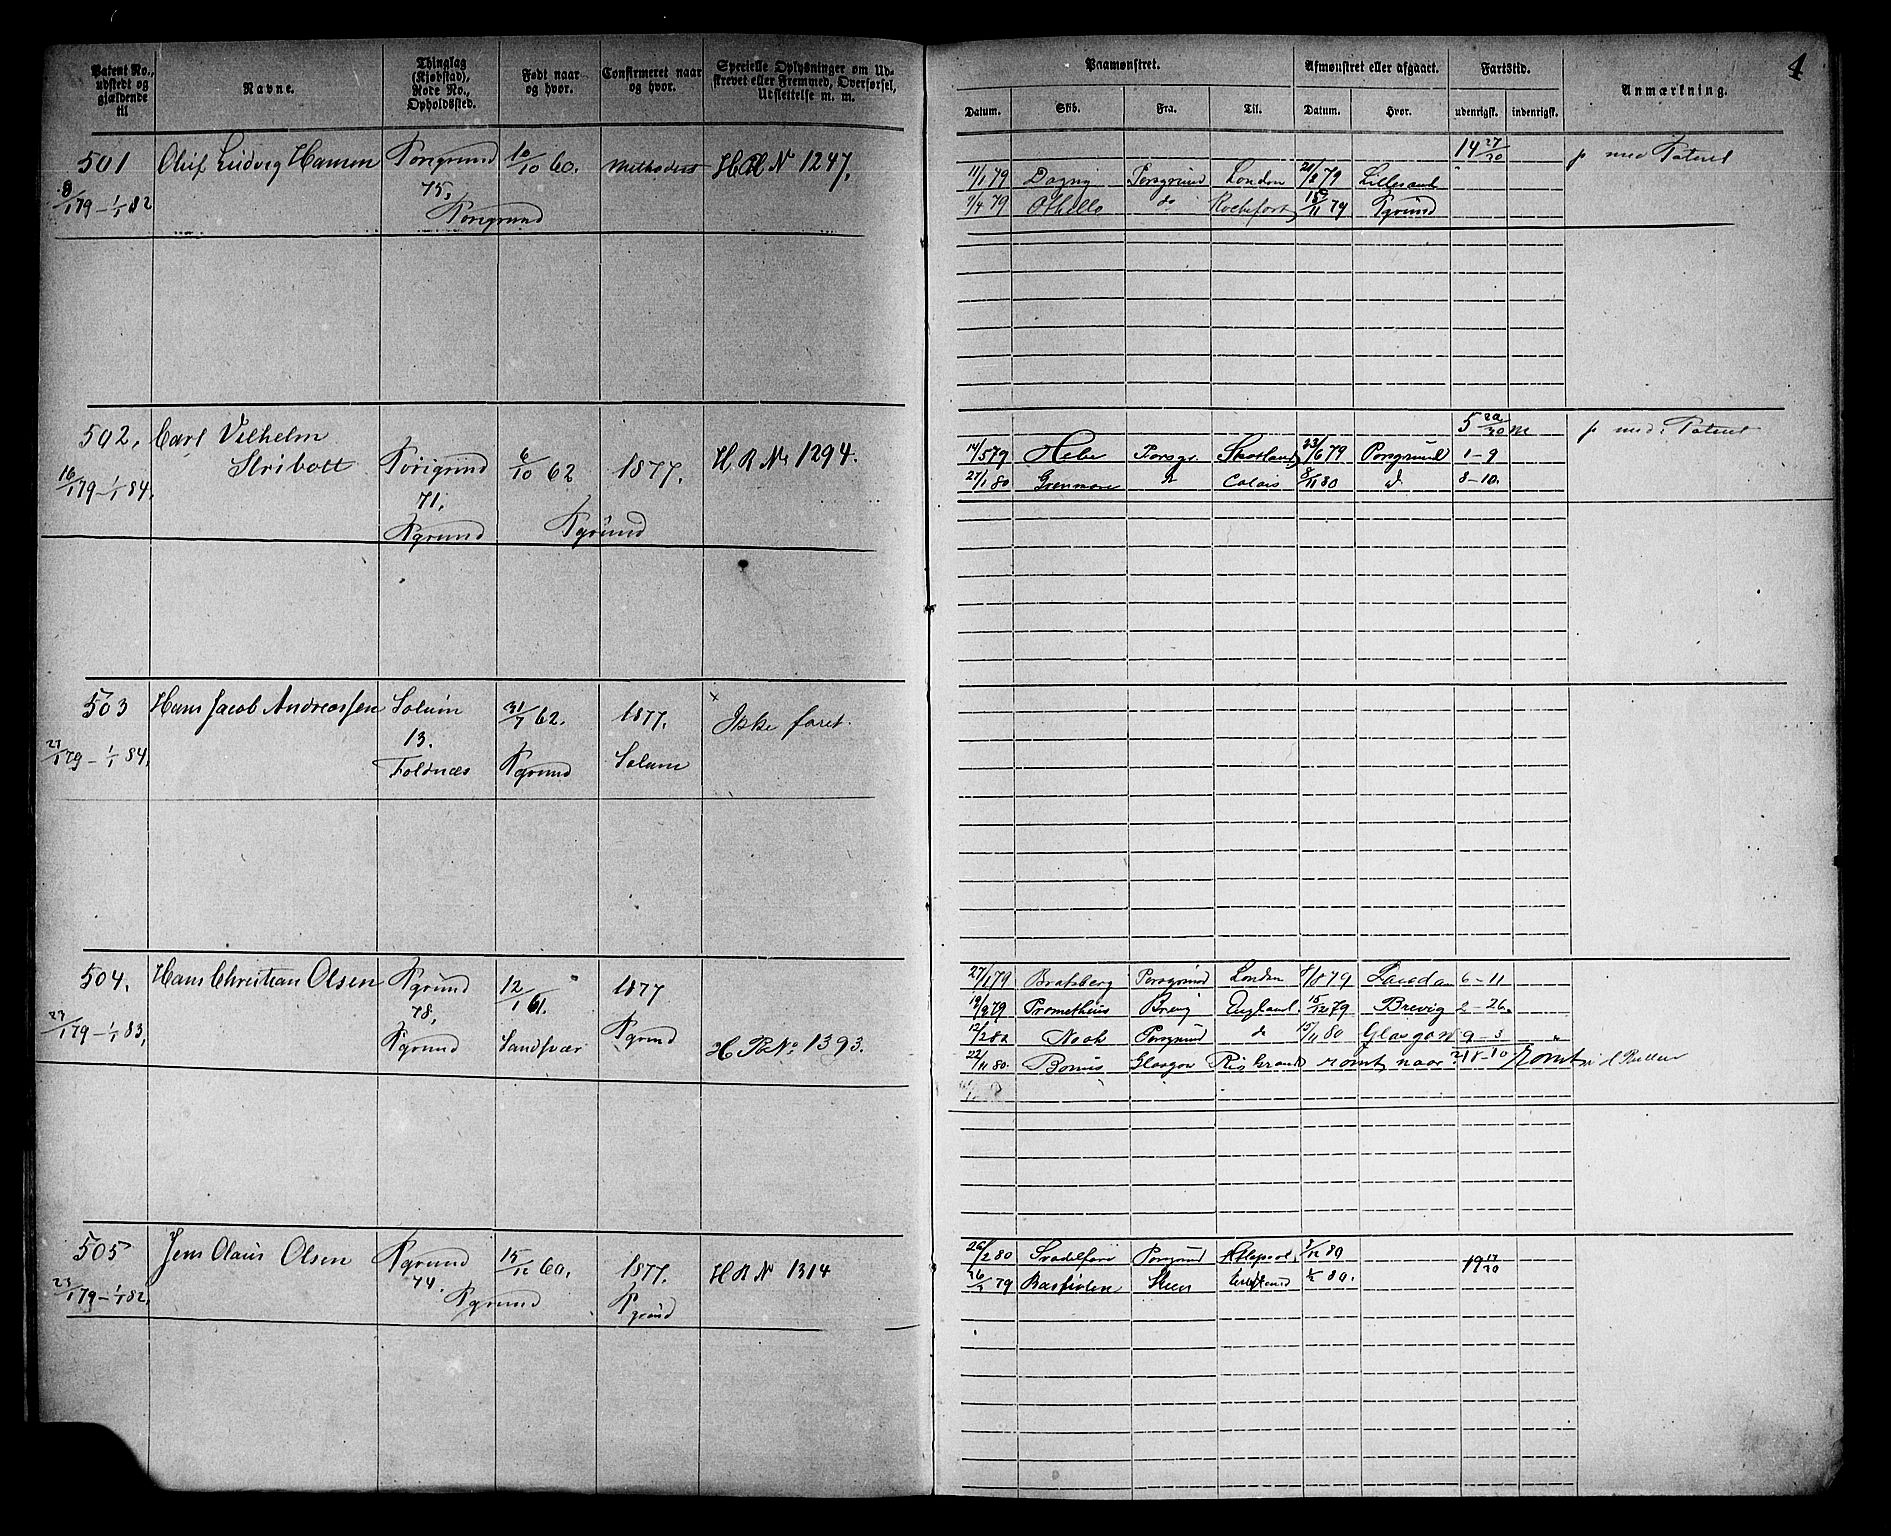 4
Patent No., udstedt og gjældende til
Navne.
Thinglag (Kjøbstad), Rode No., Opholdssted.
Født naar og hvor.
Confirmeret naar og hvor.
Specielle Oplysninger om Udskrevet eller Fremmed, Overførsel, Udslettelse m. m.
Paamønstret.
Afmønstret eller afgaaet.
Fartstid.
Anmærkning.
Datum. Skib. Fra. Til. Datum. Hvor. udenrigsk. indenrigsk.
501 Oluf Ludvig Hansen Porsgrund 10/10 60. Methodist H R № 1247.
8/1 79 – 1/1 82 75, Porsgrund
14 27/30 p med Patent
11/1 79 Dagny Porsgrund London 79 Lillesand
7/4 79 Othello do Rochefort 15/11 79 Pgrund
502, Carl Vilhelm
Stribolt Porsgrund 6/10 62 1877. H R № 1294.
16/1 79 – 1/1 84. 71. Pgrund Pgrund
5 20/30 m p med: Patent
14/5 79 Hebe Porsgr Skotland 23/6 79 Porsgrund 1 – 9
27/1 80 Grenmar d Calais 8/11 80 d 8 – 10.
503 Hans Jacob Andreassen Solum 31/7 62. 1877. × Ikke faret.
27/1 79 – 1/1 84. 13. Toldnæs Pgrund Solum
504. Hans Christian Olsen Pgrund 12/1 61. 1877
27/1 79 – 1/1 83, 78, Pgrund Sandsvær Pgrund H R № 1393.
27/1 79 Bratsberg Porsgrund London 8/8 79 6 – 11
19/9 79 Prometheus Brevig England 15/12 79 Brevig 2 – 26.
12/2 80 Noah Porsgrund do 15/11 80 Glasgow 9 – 3 "
22/11 80. Bonus Glasgow Rio Grande rømt naar?
505 Jens Claus Olsen Pgrund 15/12 60. 1877. H R № 1314
23/1 79 – 1/1 82, 74. Pgrund Pgrund
26/2 80 Svadilfare Porsgrund 80 19 17/30
79 Bastiolen Skien 80.